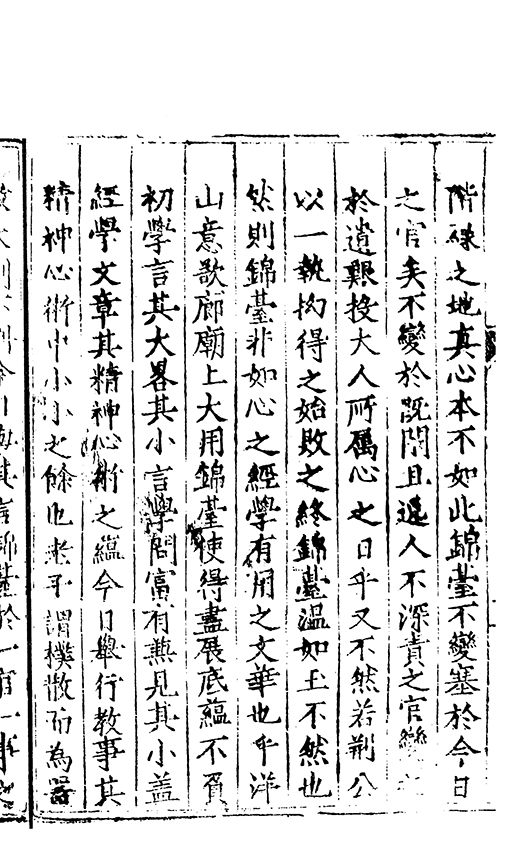 階祿之地真心本不如此錦臺不變塞於今日
之官矣不變於既閒且退人不深責之官變之
於遺艱投大人所属心之日乎又不然若荆公
以一執拗得之始敗之終錦臺温如玉不然也
然則錦臺非如心之經學有用之文華也乎洋
山意歌廊廟上大用錦臺使得盡展底蘊不負
初學言其大畧其小言學問富有無見其小盖
經學文章其精神心術之蘊今日舉行教事其
精神心術中小小之餘也老子謂樸散而為器